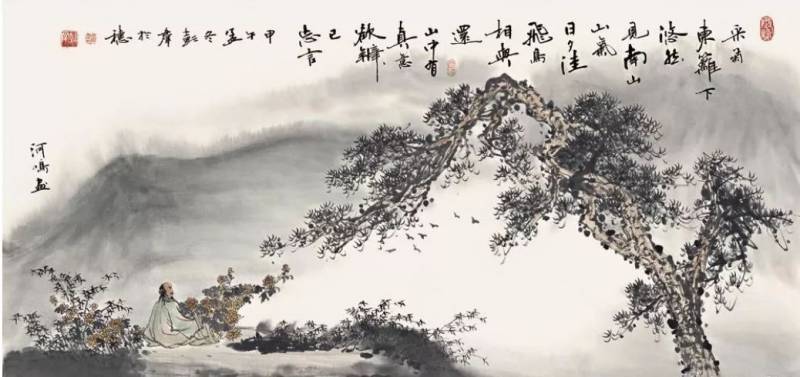 采菊
東籬下
悠然
見南山
山氣
日夕佳
飛鳥
相與
還
山中有
真意
欲辯
已
忘言
甲午孟冬彭於穗
河鳴畫